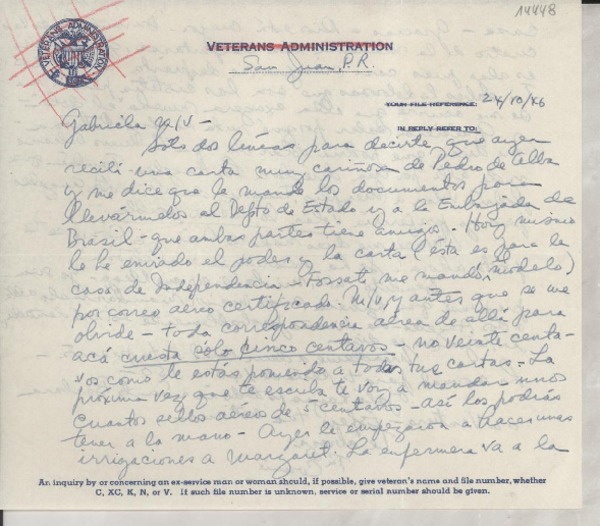 14448
VETERANS ADMINISTRATION
VETERANS ADMINISTRATION
San Juan P.R.
YOUR FILE REFERENCE:
24/10/46
IN REPLY REFER TO:
Gabriela M/V -
Solo dos líneas para decirte, que ayer
recibí una carta muy cariñosa de Pedro de Alba
y me dice que le mande los documentos para
llevármelos al Depto de Estado y a la Embajada de
Brasil - que ambas partes tiene amigos. Hoy mismo
le he enviado el poder y la carta (ésta es para la
casa de Independencia - Fossati me mandó modelo)
por correo aéreo certificado. M/V, y antes que se me
olvide - toda correspondencia aérea de allá para
acá cuesta solo cinco centavos - no veinte centa-
vos como le estás poniendo a todas tus cartas. La
próxima vez que te escriba te voy a mandar unos
cuantos sellos aéreo de 5 centavos - así los podrás
tener a la mano - Ayer le empezaron a hacer unas
irrigaciones a Margaret. La enfermera va a la
An inquiry by or concerning an ex-service man or woman should, if possible, give veteran's name and file number, whether
C, XC, K, N, or V. If such file number is unknown, service or serial number should be given.